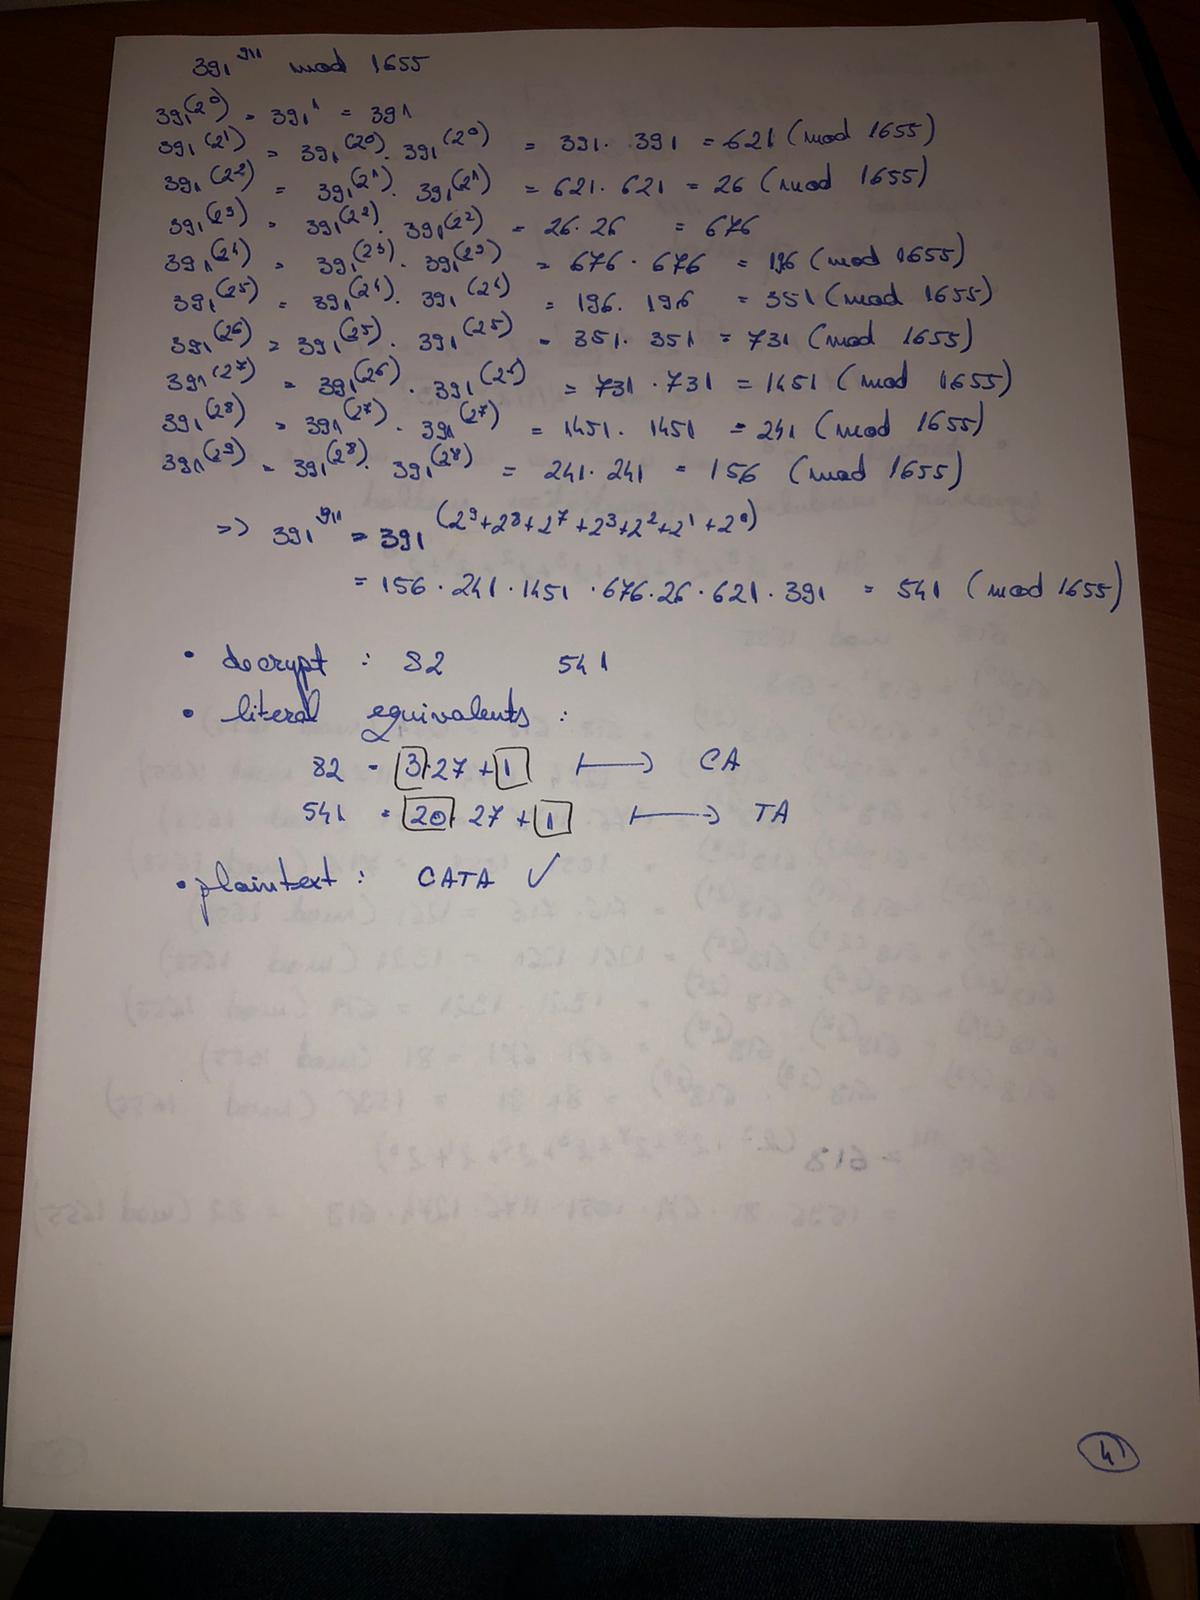 391^911 mod 1655
391^(2^0) = 391^1 = 391
391^(2^1) = 391^(2^0) · 391^(2^0) = 391 · 391 = 621 (mod 1655)
391^(2^2) = 391^(2^1) · 391^(2^1) = 621 · 621 = 26 (mod 1655)
391^(2^3) = 391^(2^2) · 391^(2^2) = 26 · 26 = 676
391^(2^4) = 391^(2^3) · 391^(2^3) = 676 · 676 = 196 (mod 1655)
391^(2^5) = 391^(2^4) · 391^(2^4) = 196 · 196 = 351 (mod 1655)
391^(2^6) = 391^(2^5) · 391^(2^5) = 351 · 351 = 731 (mod 1655)
391^(2^7) = 391^(2^6) · 391^(2^6) = 731 · 731 = 1451 (mod 1655)
391^(2^8) = 391^(2^7) · 391^(2^7) = 1451 · 1451 = 241 (mod 1655)
391^(2^9) = 391^(2^8) · 391^(2^8) = 241 · 241 = 156 (mod 1655)
=> 391^911 = 391^(2^9+2^8+2^7+2^3+2^2+2^1+2^0)
= 156 · 241 · 1451 · 676 · 26 · 621 · 391 = 541 (mod 1655)
• decrypt : 82 541
• literal equivalents :
82 = 3 · 27 + 1 ⟼ CA
541 = 20 · 27 + 1 ⟼ TA
• plaintext : CATA ✓
4